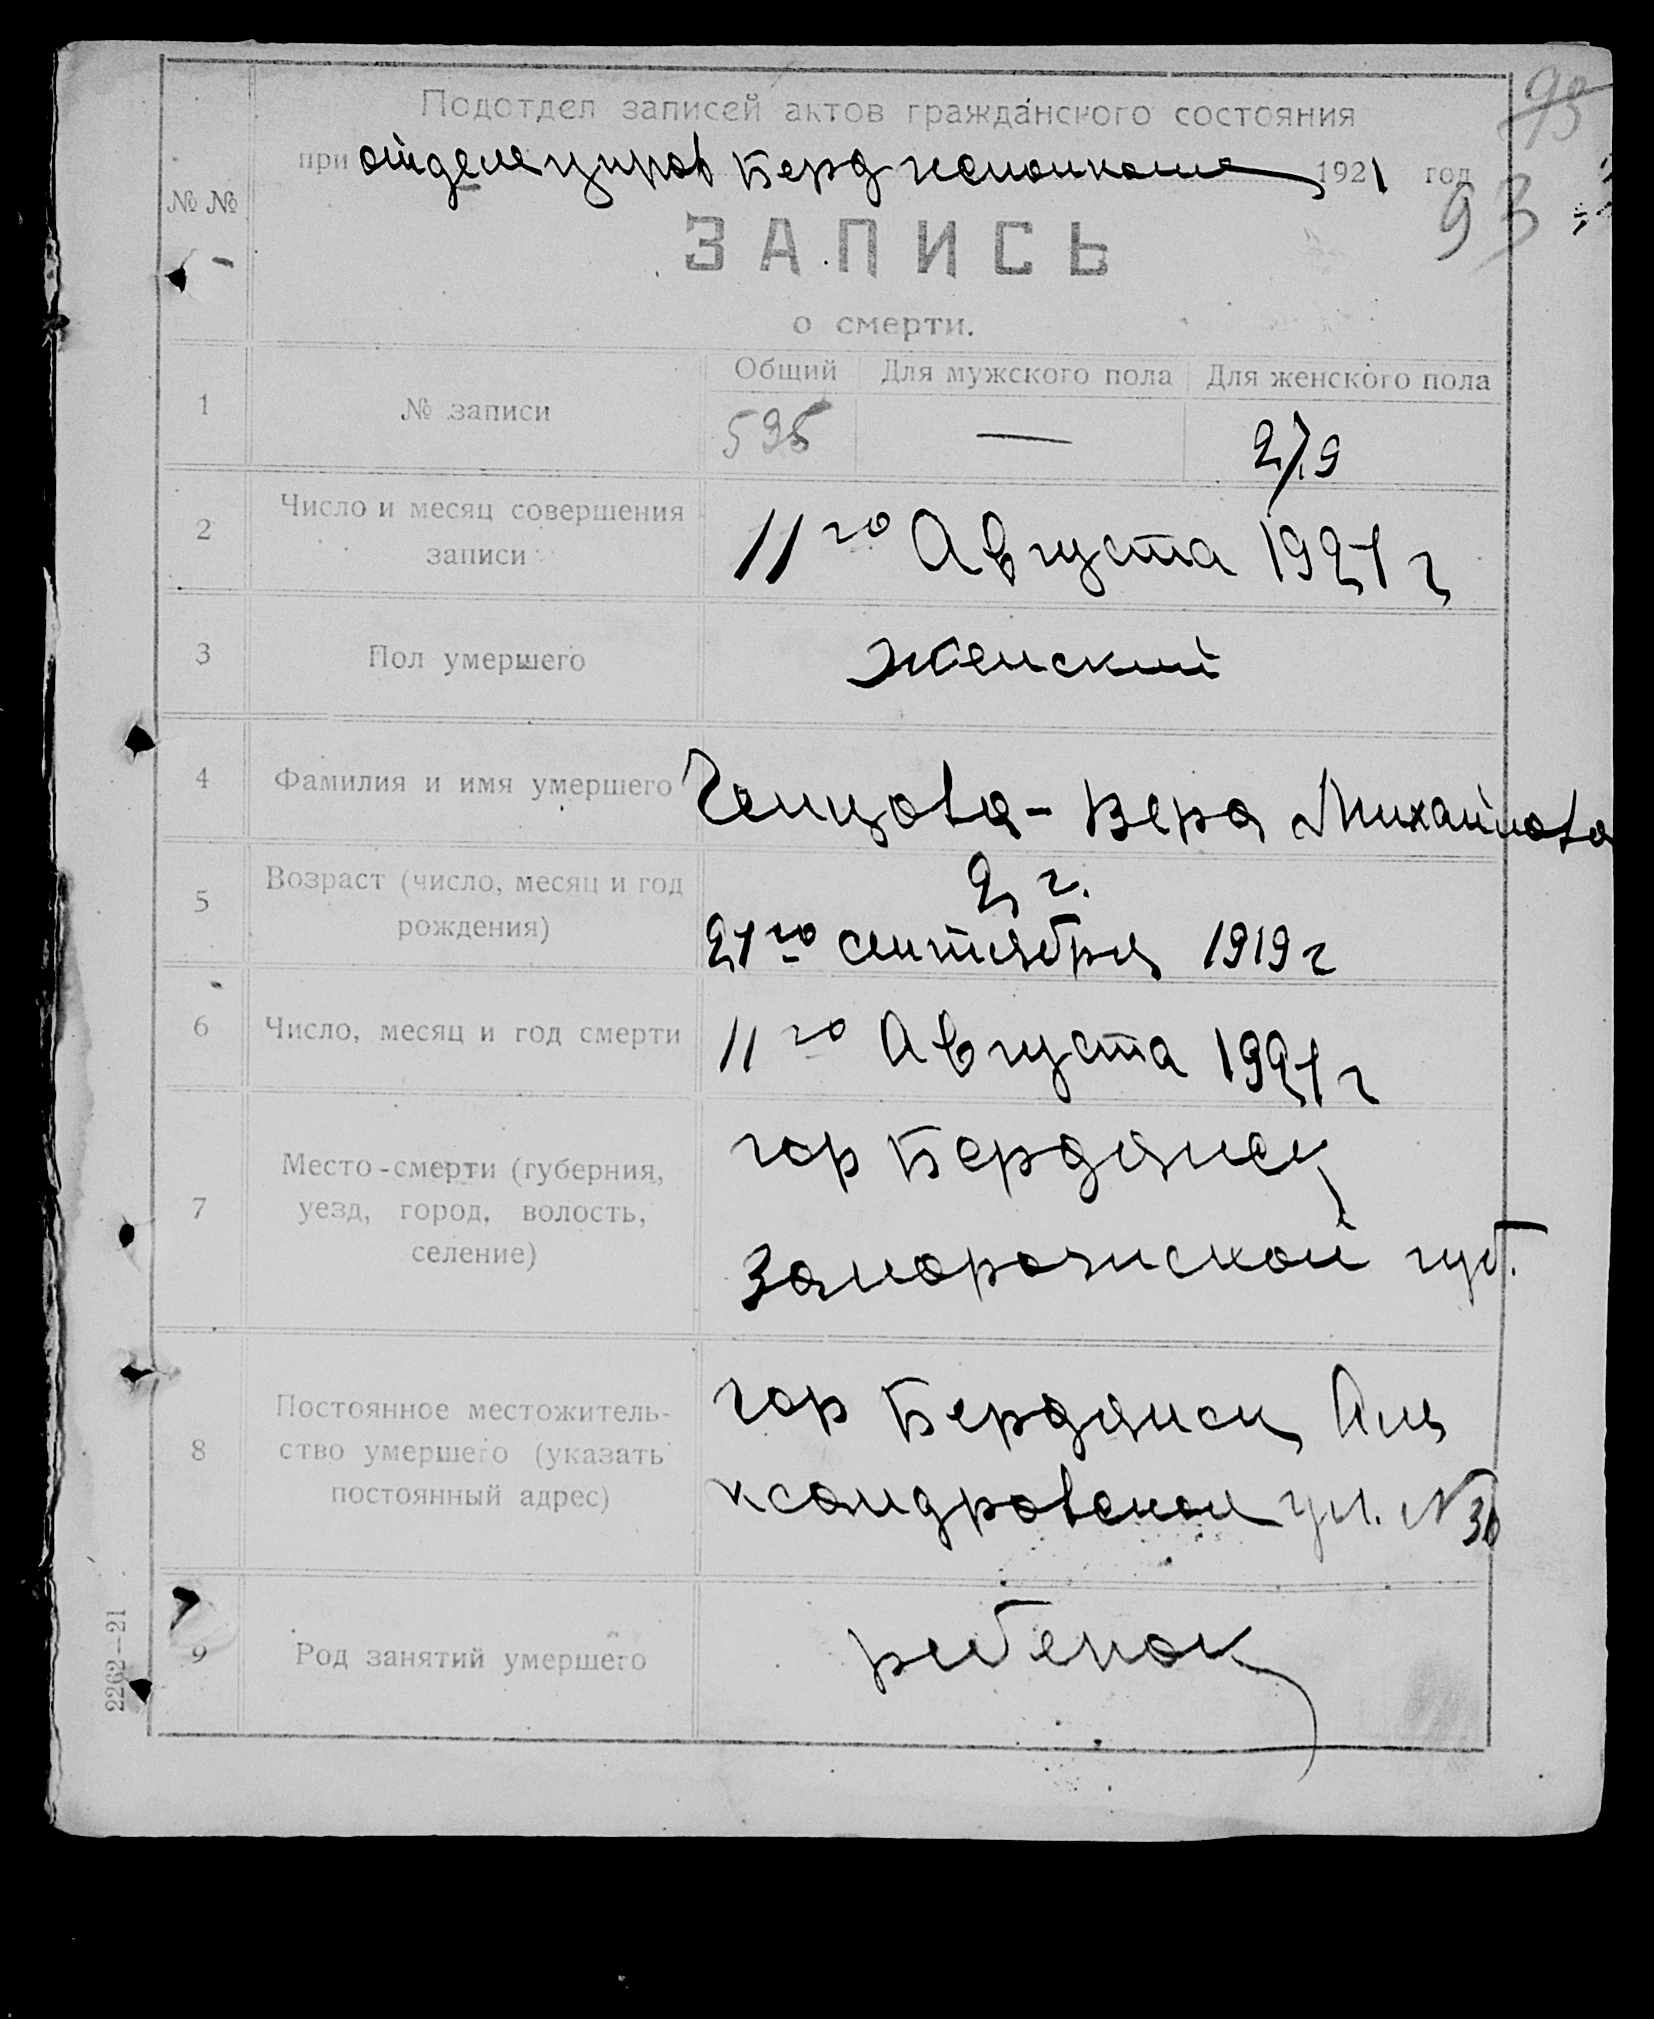 93
Подотдел записей актов гражданского состояния
при отделе управ Берд исполкома 1921 год
93
№ №
ЗАПИСЬ
о смерти.
Общий Для мужского пола Для женского пола
1 № записи 595 — 279
2 Число и месяц совершения
записи 11го Августа 1921 г
3 Пол умершего Женский
4 Фамилия и имя умершего Ченцова - Вера Михайлова
5 Возраст (число, месяц и год
рождения)
2 г.
21го сентября 1919 г
6 Число, месяц и год смерти 11го Августа 1921 г
7 Место-смерти (губерния,
уезд, город, волость,
селение)
гор Бердянск
Запорожской губ.
8 Постоянное местожитель-
ство умершего (указать
постоянный адрес)
гор Бердянск Але
ксандровской ул. № 36
9 Род занятий умершего ребенок
2262—21